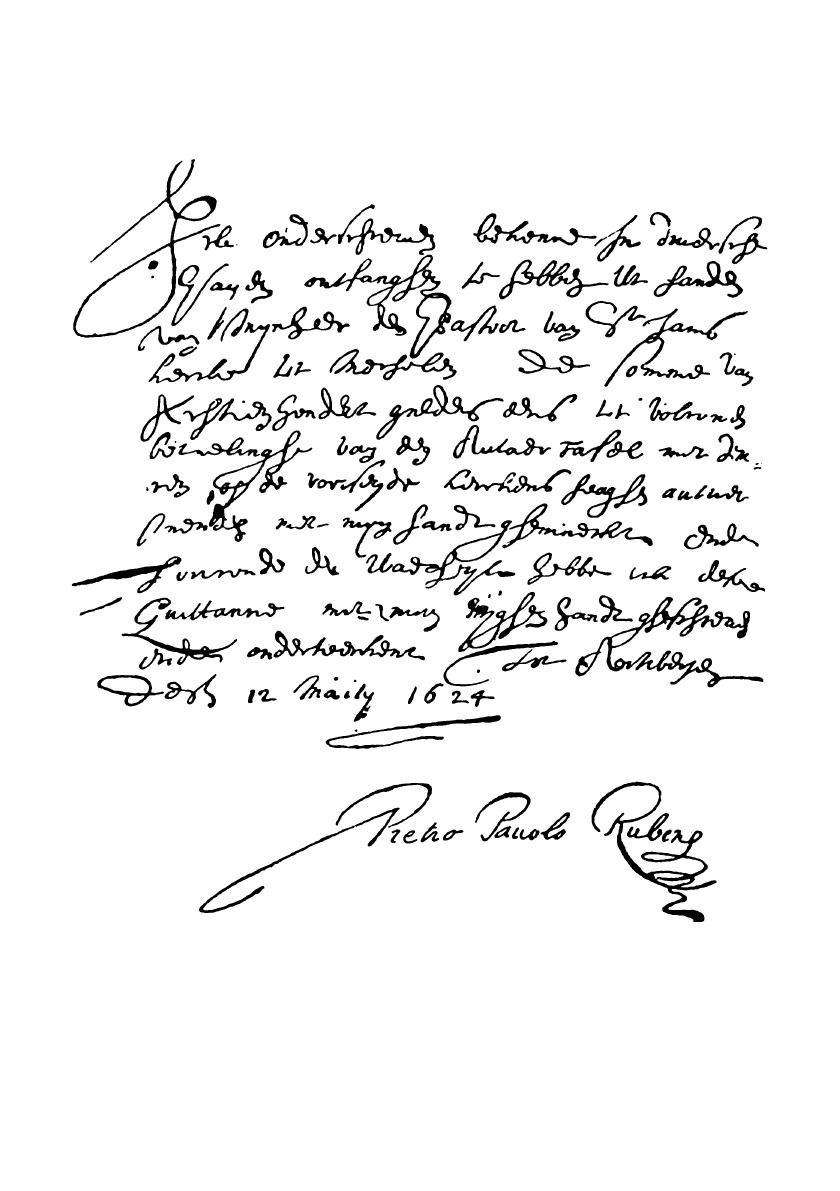 Ick onderschreven bekenne in diversche
Paeyen ontfanghen te hebben Ut handen
van Mynheer den Pastoor van St Jans
kercke tot Mechelen De somme van
Achtien hondert guldens eens tot volcomen
betaelinghe van den Autaer Tafel met Deu-
ren op de voorseyde kerckens hooghen autaer
staende met myn handt ghemaeckt. Ende
t' oirconde der Waerheyt hebbe ick dese
Quittancie met myn eyghen handt gheschreven
ende onderteeckent. Tot
Desen 12 Martij 1624
Pietro Pauolo Rubens